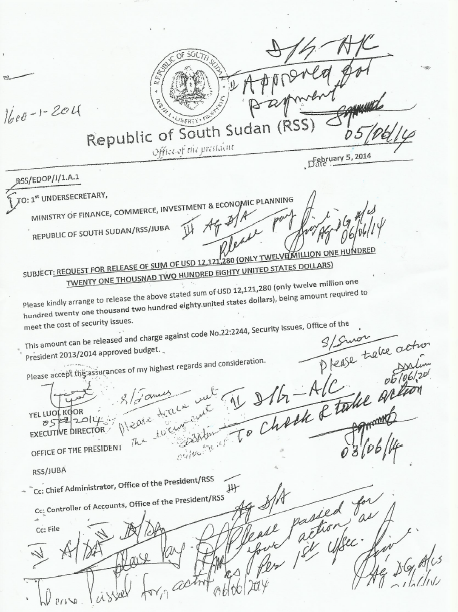 D/G - A/C
II Approved for
payment
05/06/14
REPUBLIC OF SOUTH SUDAN
Republic of South Sudan (RSS)
Office of the president
Date February 5, 2014
RSS/EDOP/J/1.A.1
TO: 1st UNDERSECRETARY,
MINISTRY OF FINANCE, COMMERCE, INVESTMENT & ECONOMIC PLANNING
REPUBLIC OF SOUTH SUDAN/RSS/JUBA
III Ag D/A
Please pay
06/06/14
SUBJECT: REQUEST FOR RELEASE OF SUM OF USD 12,121,280 (ONLY TWELVE MILLION ONE HUNDRED
TWENTY ONE THOUSNAD TWO HUNDRED EIGHTY UNITED STATES DOLLARS)
Please kindly arrange to release the above stated sum of USD 12,121,280 (only twelve million one
hundred twenty one thousand two hundred eighty united states dollars), being amount required to
meet the cost of security issues.
This amount can be released and charge against code No.22:2244, Security Issues, Office of the
President 2013/2014 approved budget.
Please accept the assurances of my highest regards and consideration.
Please take action
YEL LUOL KOOR
EXECUTIVE DIRECTOR
OFFICE OF THE PRESIDENT
RSS/JUBA
II D/G - A/C
To Check & take action
03/06/14
Cc: Chief Administrator, Office of the President/RSS
Cc: Controller of Accounts, Office of the President/RSS
Cc: File
III
Ag D/A
Please passed for
your action as
per 1st U/Sec.
Please pay
06/06/2014